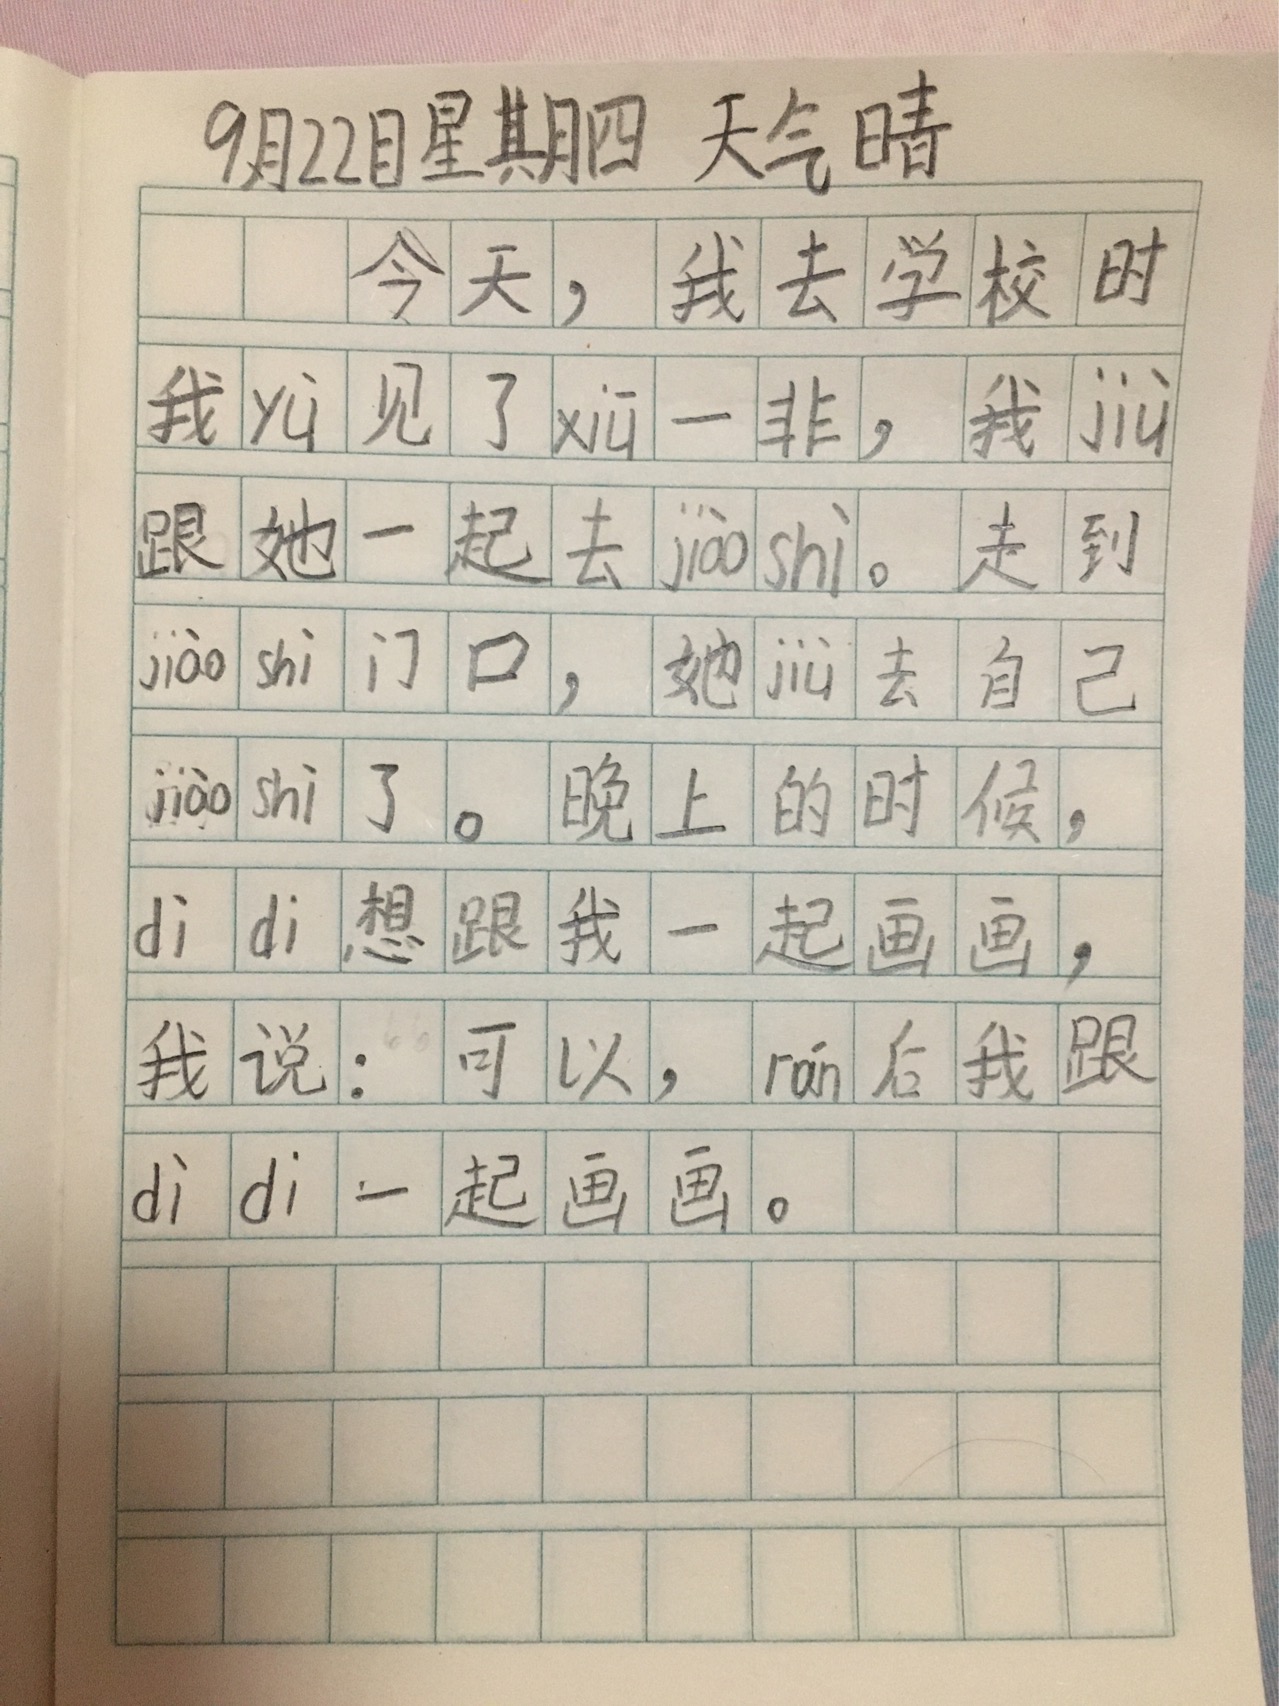 9月22日星期四 天气晴
今天，我去学校时
我yù见了xiū一非，我jiù
跟她一起去jiàoshì。走到
jiàoshì门口，她jiù去自己
jiàoshì了。晚上的时候，
dìdi想跟我一起画画，
我说：可以，rán后我跟
dìdi一起画画。